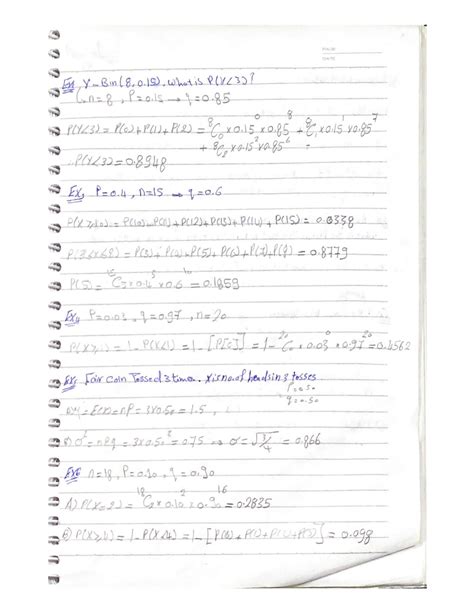 Ex1 Y~Bin(8,0.15). What is P(Y<3)?
n=8, P=0.15 → q=0.85
P(Y<3)=P(0)+P(1)+P(2)= ⁸C₀x0.15⁰x0.85⁸ + ⁸C₁x0.15¹x0.85⁷
+ ⁸C₂x0.15²x0.85⁶ =
∴P(Y<3)=0.8948
P=0.4, n=15 → q=0.6
=P(10)+P(11)+P(12)+P(13)+P(14)+P(15)=0.0338
=P(3)+P(4)+P(5)+P(6)+P(7)+P(8)=0.8779
P(5)= ¹⁵C₅x0.4⁵x0.6¹⁰ = 0.1859
Ex4 P=0.03, q=0.97, n=20
P(X≥1)=1-P(X<1)=1-[P(0)]=1-²⁰C₀x0.03⁰x0.97²⁰=0.4562
Fair coin Tossed 3 times. X is no. of heads in 3 tosses
P=0.50
q=0.50
=nP=3x0.50=1.5,
σ²=npq=3x0.50²=0.75 → σ=√3/4 = 0.866
Ex6 n=18, P=0.10, q=0.90
A) P(X=2)= ¹⁸C₂x0.10²x0.90¹⁶ =0.2835
B) P(X≥4)=1-P(X<4)=1-[P(0)+P(1)+P(2)+P(3)]=0.098